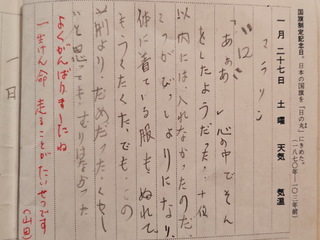 国旗制定記念日。日本の国旗を「日の丸」にきめた。
(一八七〇年＝一〇三年前)
一月二十七日 土曜 天気 気温
マラソン
「ああぁ。」心の中でそん
をしたようだった。十位
以内には、入れなかったのだ。
てつがびっしょりになり、
体に着ている服も、ぬれて、
もうくたくた。でも、この
前より、だめだった。くやし
いと思っても、むりはなかった
よくがんばりましたね
一生けん命、走ることがたいせつです
一日